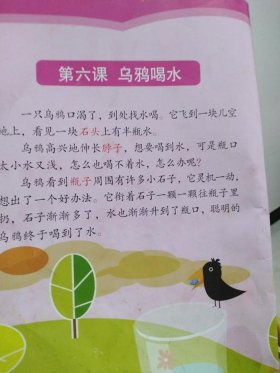 第六课 乌鸦喝水
一只乌鸦口渴了，到处找水喝。它飞到一块儿空
地上，看见一块石头上有半瓶水。
乌鸦高兴地伸长脖子，想要喝到水，可是瓶口
太小水又浅，怎么也喝不着水，怎么办呢？
乌鸦看到瓶子周围有许多小石子，它灵机一动，
想出了一个好办法。它衔着石子一颗一颗往瓶子里
扔，石子渐渐多了，水也渐渐升到了瓶口，聪明的
乌鸦终于喝到了水。